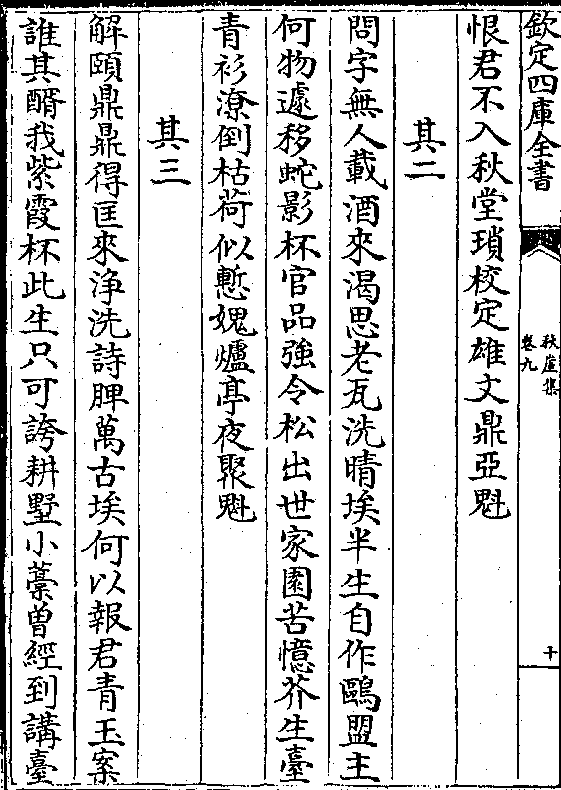 欽定四庫全書
秋崖集
卷九
十
恨君不入秋堂瑣校定雄文鼎亞魁
其二
問字無人載酒來渴思老瓦洗晴埃半生自作鷗盟主
何物遽移蛇影杯官品強令松出世家園苦憶芥生臺
青衫潦倒枯荷似慙媿爐亭夜聚魁
其三
解頤鼎鼎得匡來淨洗詩脾萬古埃何以報君青玉案
誰其酳我紫霞杯此生只可誇耕墅小藁曾經到講臺